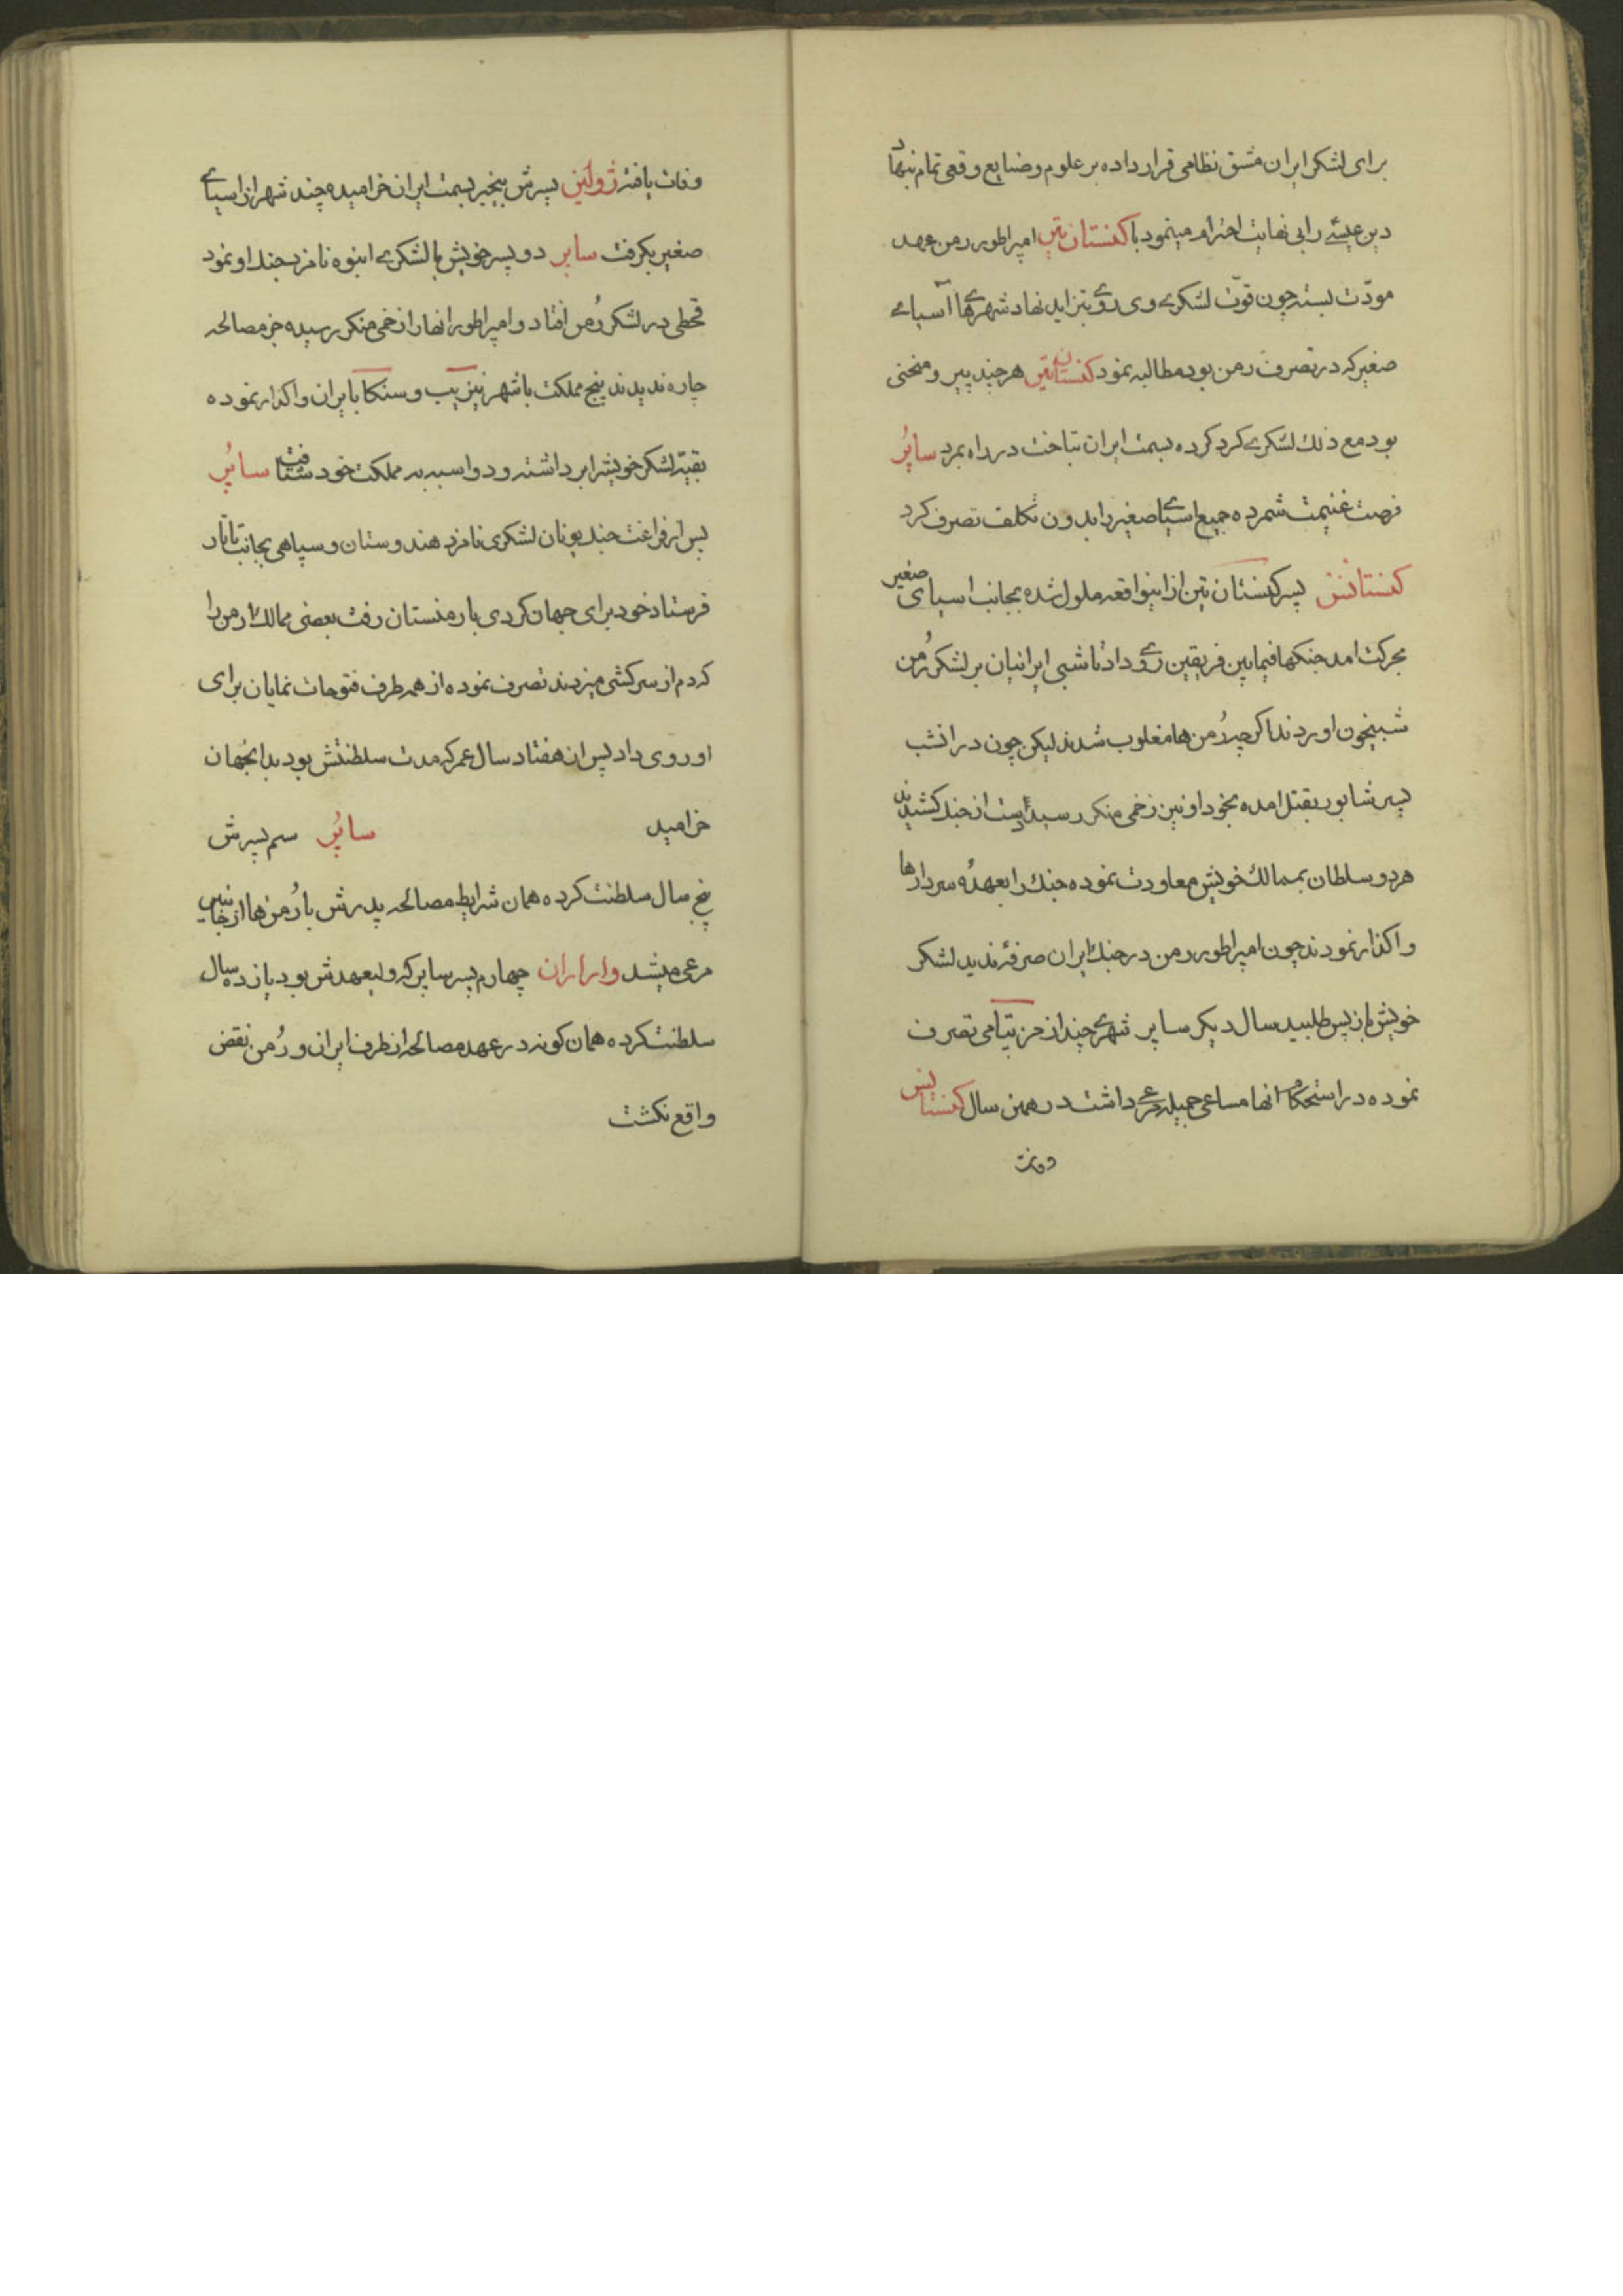 برای لشکر ایران مشق نظامی قرار داده بر علوم و صنایع وقعی تمام نهاد
دین عیسے را بی نهایت احترام مینمود با کنستان تین امپراطور رمن عهد
مودّت بسته چون قوّت لشکرے وی روے بتزاید نهاد شهرے هاے آسیاے
صغیر که در تصرف رمن بود مطالبه نمود کنستان تین هر چند پیر و منحنی
بود مع ذلك لشکرے کرد کرده بسمت ایران بتاخت در راه بمرد ساپُر
فرصت غنیمت شمرده جمیع اسیاے صغیر را بدون تکلف تصرف کرد
کنستانتس پسر کنستان تین از اینواقعه ملول شده بجانب اسیای صغیر
بحرکت امد جنکها فیمابین فریقین روے داد تا شبی ایرانیان بر لشکر رُمن
شبیخون اوردند اکرچه رُمن ها مغلوب شدند لیکن چون در انشب
پسر شاپور بقتل امده بخود او نیز زخمی منکر رسید دست از جنك کشیدند
هر دو سلطان بممالك خویش معاودت نموده جنك را بعهدهٔ سردارها
واکذار نمودند چون امپراطور رمن در جنك ایران صرفهٔ ندید لشکر
خویش باز پس طلبید سال دیکر ساپر شهرے چند از مزپتامی تصرف
نموده در استحکام انها مساعی جمیله مرعے داشت در همن سال کنستانتس
وفات
وفات یافته ژولین پسرش بیخبر بسمت ایران خرامیده چند شهر از اسیاے
صغیر بکرفت ساپر دو پسر خویش با لشکرے انبوه نامزد جنك او نمود
قحطی در لشکر رُمن افتاد و امپراطور انها را زخمی منکر رسیده جز مصالحه
چاره ندیدند پنج مملکت با شهر نیزیب و سنکا با ایران واکذار نموده
بقیّه لشکر خویشرا برداشته و دواسبه به مملکت خود شتافت ساپُر
پس از فراغت جنك یونان لشکری نامزد هندوستان و سپاهی بجانب تاتار
فرستاد خود برای جهان کردی بارمنستان رفت بعضی ممالك ارمن را
که دم از سرکشی میزدند تصرف نموده از همه طرف فتوحات نمایان برای
او روی داد پس از هفتاد سال عمر که مدت سلطنتش بود بدانجهان
خرامید ساپُر سم پسرش
پنج سال سلطنت کرده همان شرایط مصالحه پدرش با رُمن ها از جانبین
مرعی میشد واراران چهارم پسر ساپر که ولیعهدش بود یازده سال
سلطنت کرده همان کونه در عهد مصالحه از طرف ایران و رُمن نقض
واقع نکشت